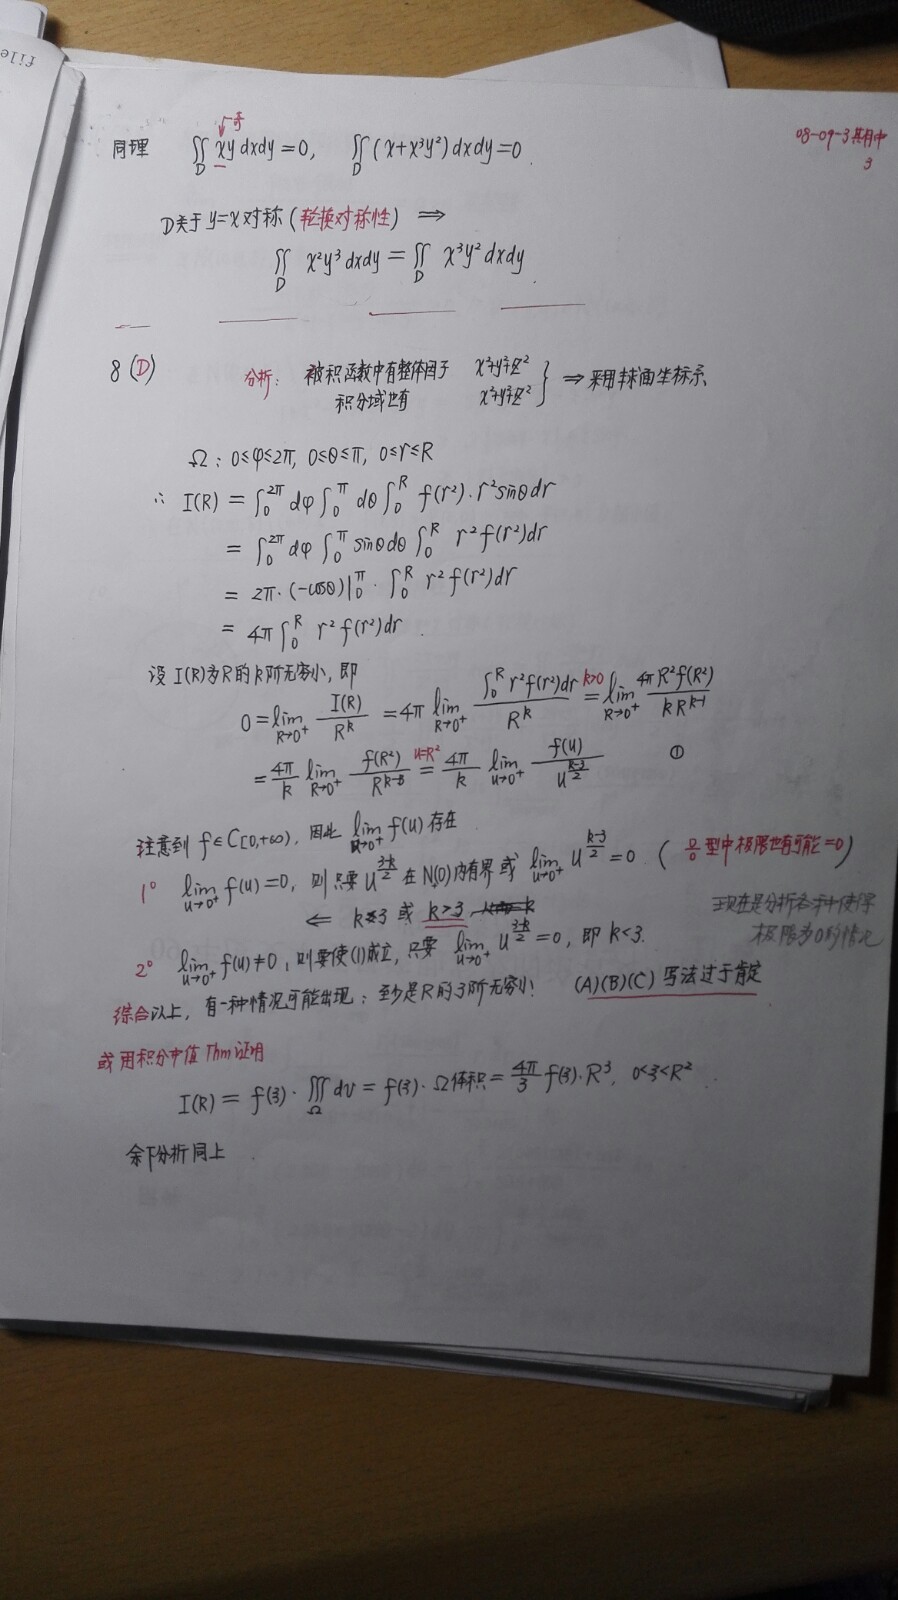 file
08-09-3期中
3
奇
同理 ∬_D xy dxdy = 0, ∬_D (x+x³y²) dxdy = 0.
D关于 y=x 对称 (轮换对称性) ⇒
∬_D x²y³ dxdy = ∬_D x³y² dxdy.
8 (D) 分析: 被积函数中有整体因子 x²+y²+z²
积分域也有 x²+y²+z² } ⇒ 采用球面坐标系
Ω: 0≤φ≤2π, 0≤θ≤π, 0≤r≤R
∴ I(R) = ∫₀^{2π} dφ ∫₀^π dθ ∫₀^R f(r²)·r² sinθ dr
= ∫₀^{2π} dφ ∫₀^π sinθ dθ ∫₀^R r² f(r²) dr
= 2π·(-cosθ)|₀^π · ∫₀^R r² f(r²) dr
= 4π ∫₀^R r² f(r²) dr.
设 I(R)为R的k阶无穷小, 即
0 = lim_{R→0⁺} I(R)/R^k = 4π lim_{R→0⁺} ∫₀^R r² f(r²) dr / R^k \overset{k>0}{=} lim_{R→0⁺} 4πR² f(R²) / kR^{k-1}
= 4π/k lim_{R→0⁺} f(R²)/R^{k-3} \overset{u=R²}{=} 4π/k lim_{u→0⁺} f(u)/u^{(k-3)/2} ①
注意到 f∈C[0,+∞), 因此 lim f(u) 存在
1° lim_{u→0⁺} f(u)=0, 则只要 u^{(3-k)/2} 在 N(0)内有界 或 lim_{u→0⁺} u^{(k-3)/2} = 0. (0/0 型中极限也有可能=0)
⇐ k≤3 或 k>3
现在是分析各种使得
极限为0的情况
2° lim_{u→0⁺} f(u)≠0, 则要使(1)成立, 只要 lim_{u→0⁺} u^{(3-k)/2} = 0, 即 k<3.
综合以上, 有一种情况可能出现: 至少是R的3阶无穷小! (A)(B)(C) 写法过于肯定
或用积分中值Thm证明
I(R) = f(ξ)·∭_Ω dv = f(ξ)·Ω体积 = 4π/3 f(ξ)·R³, 0<ξ<R².
余下分析同上.